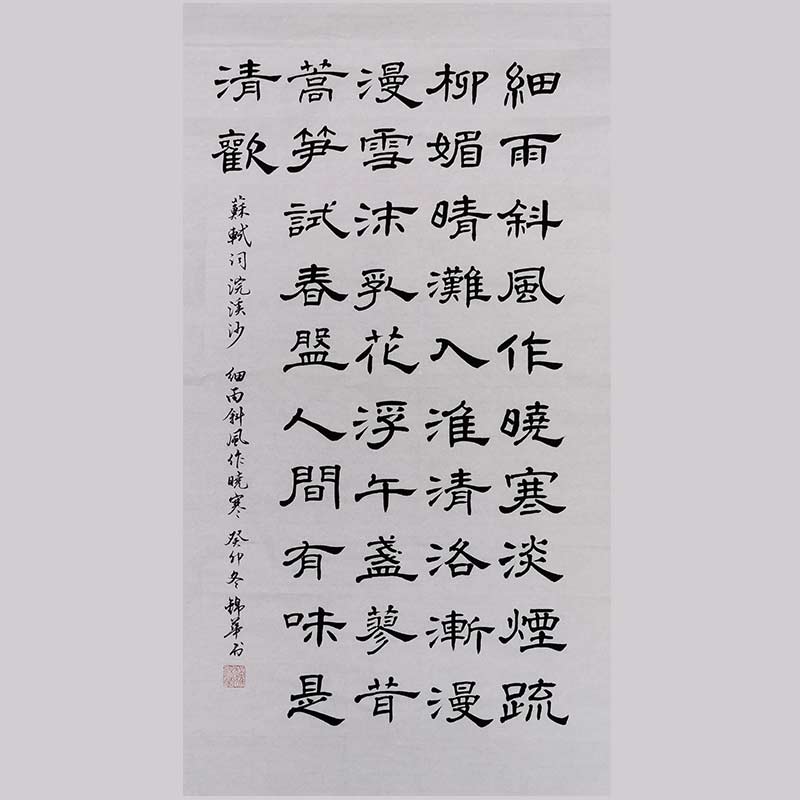 細雨斜風作曉寒淡煙疏
柳媚晴灘入淮清洛漸漫
漫雪沫乳花浮午盞蓼茸
蒿笋試春盤人間有味是
清歡
蘇軾词浣溪沙 細雨斜風作曉寒 癸卯冬錦華书